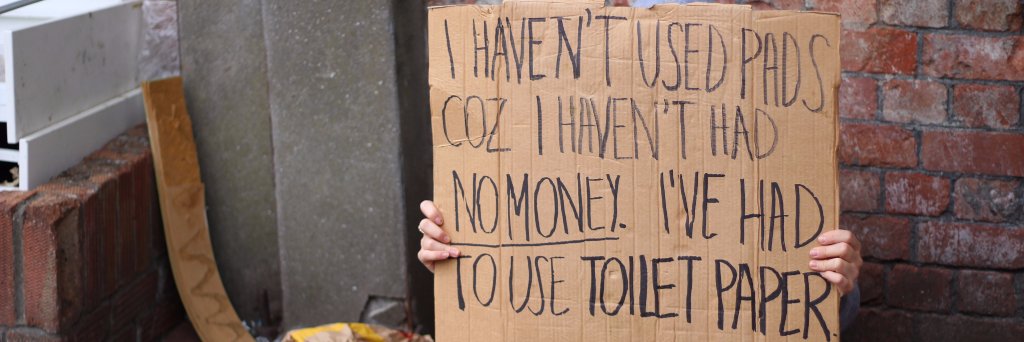 I HAVEN'T USED PADS
COZ I HAVEN'T HAD
NO MONEY. I'VE HAD
TO USE TOILET PAPER.